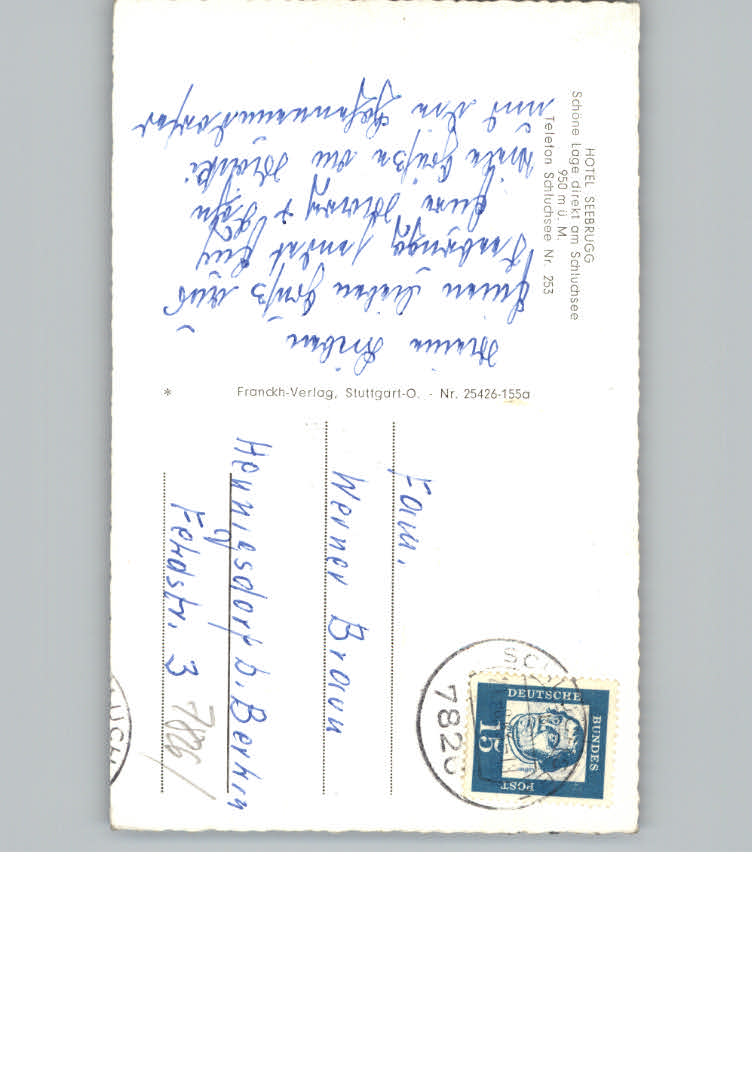 HOTEL SEEBRUGG
Schöne Lage direkt am Schluchsee
950 m ü. M.
Telefon Schluchsee Nr. 253
Meine Lieben
Einen lieben Gruß aus
Seebrugg sendet Euch
Eure
Viele Grüße an
und den
Franckh-Verlag, Stuttgart-O. - Nr. 25426-155a
*
Fam.
Werner Braun
Hennigsdorf b. Berlin
Feldstr. 3
7826/
DEUTSCHE
BUNDES
POST
15
SCH
7820
LUCH